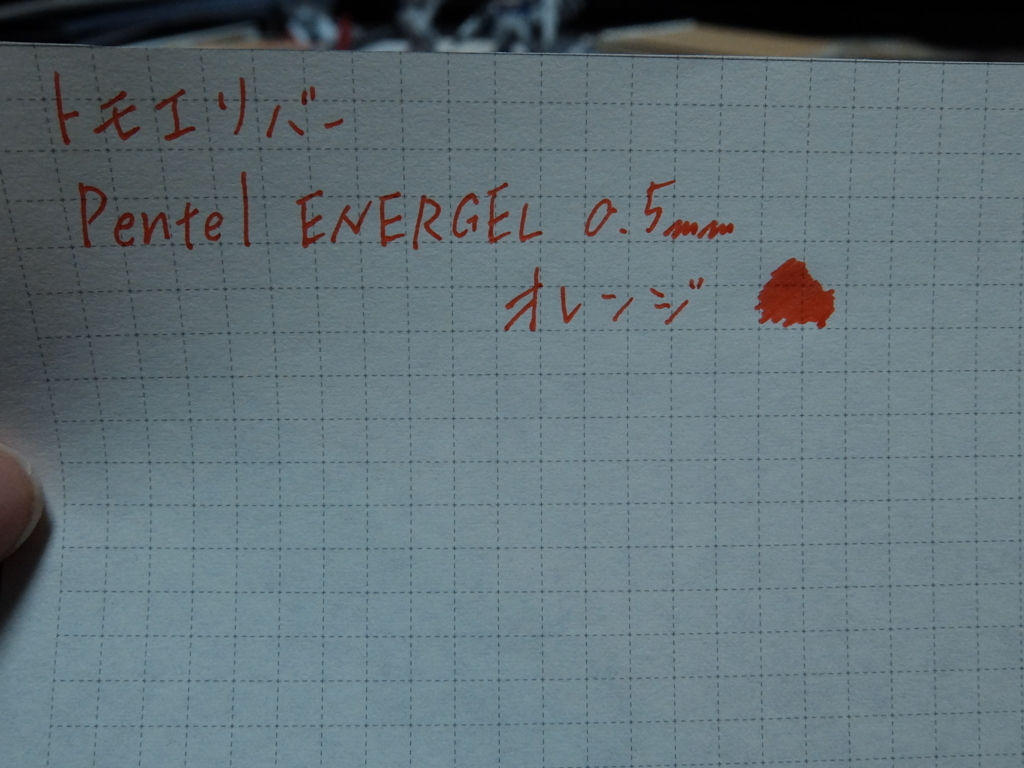 トモエリバー
Pentel ENERGEL 0.5mm
オレンジ